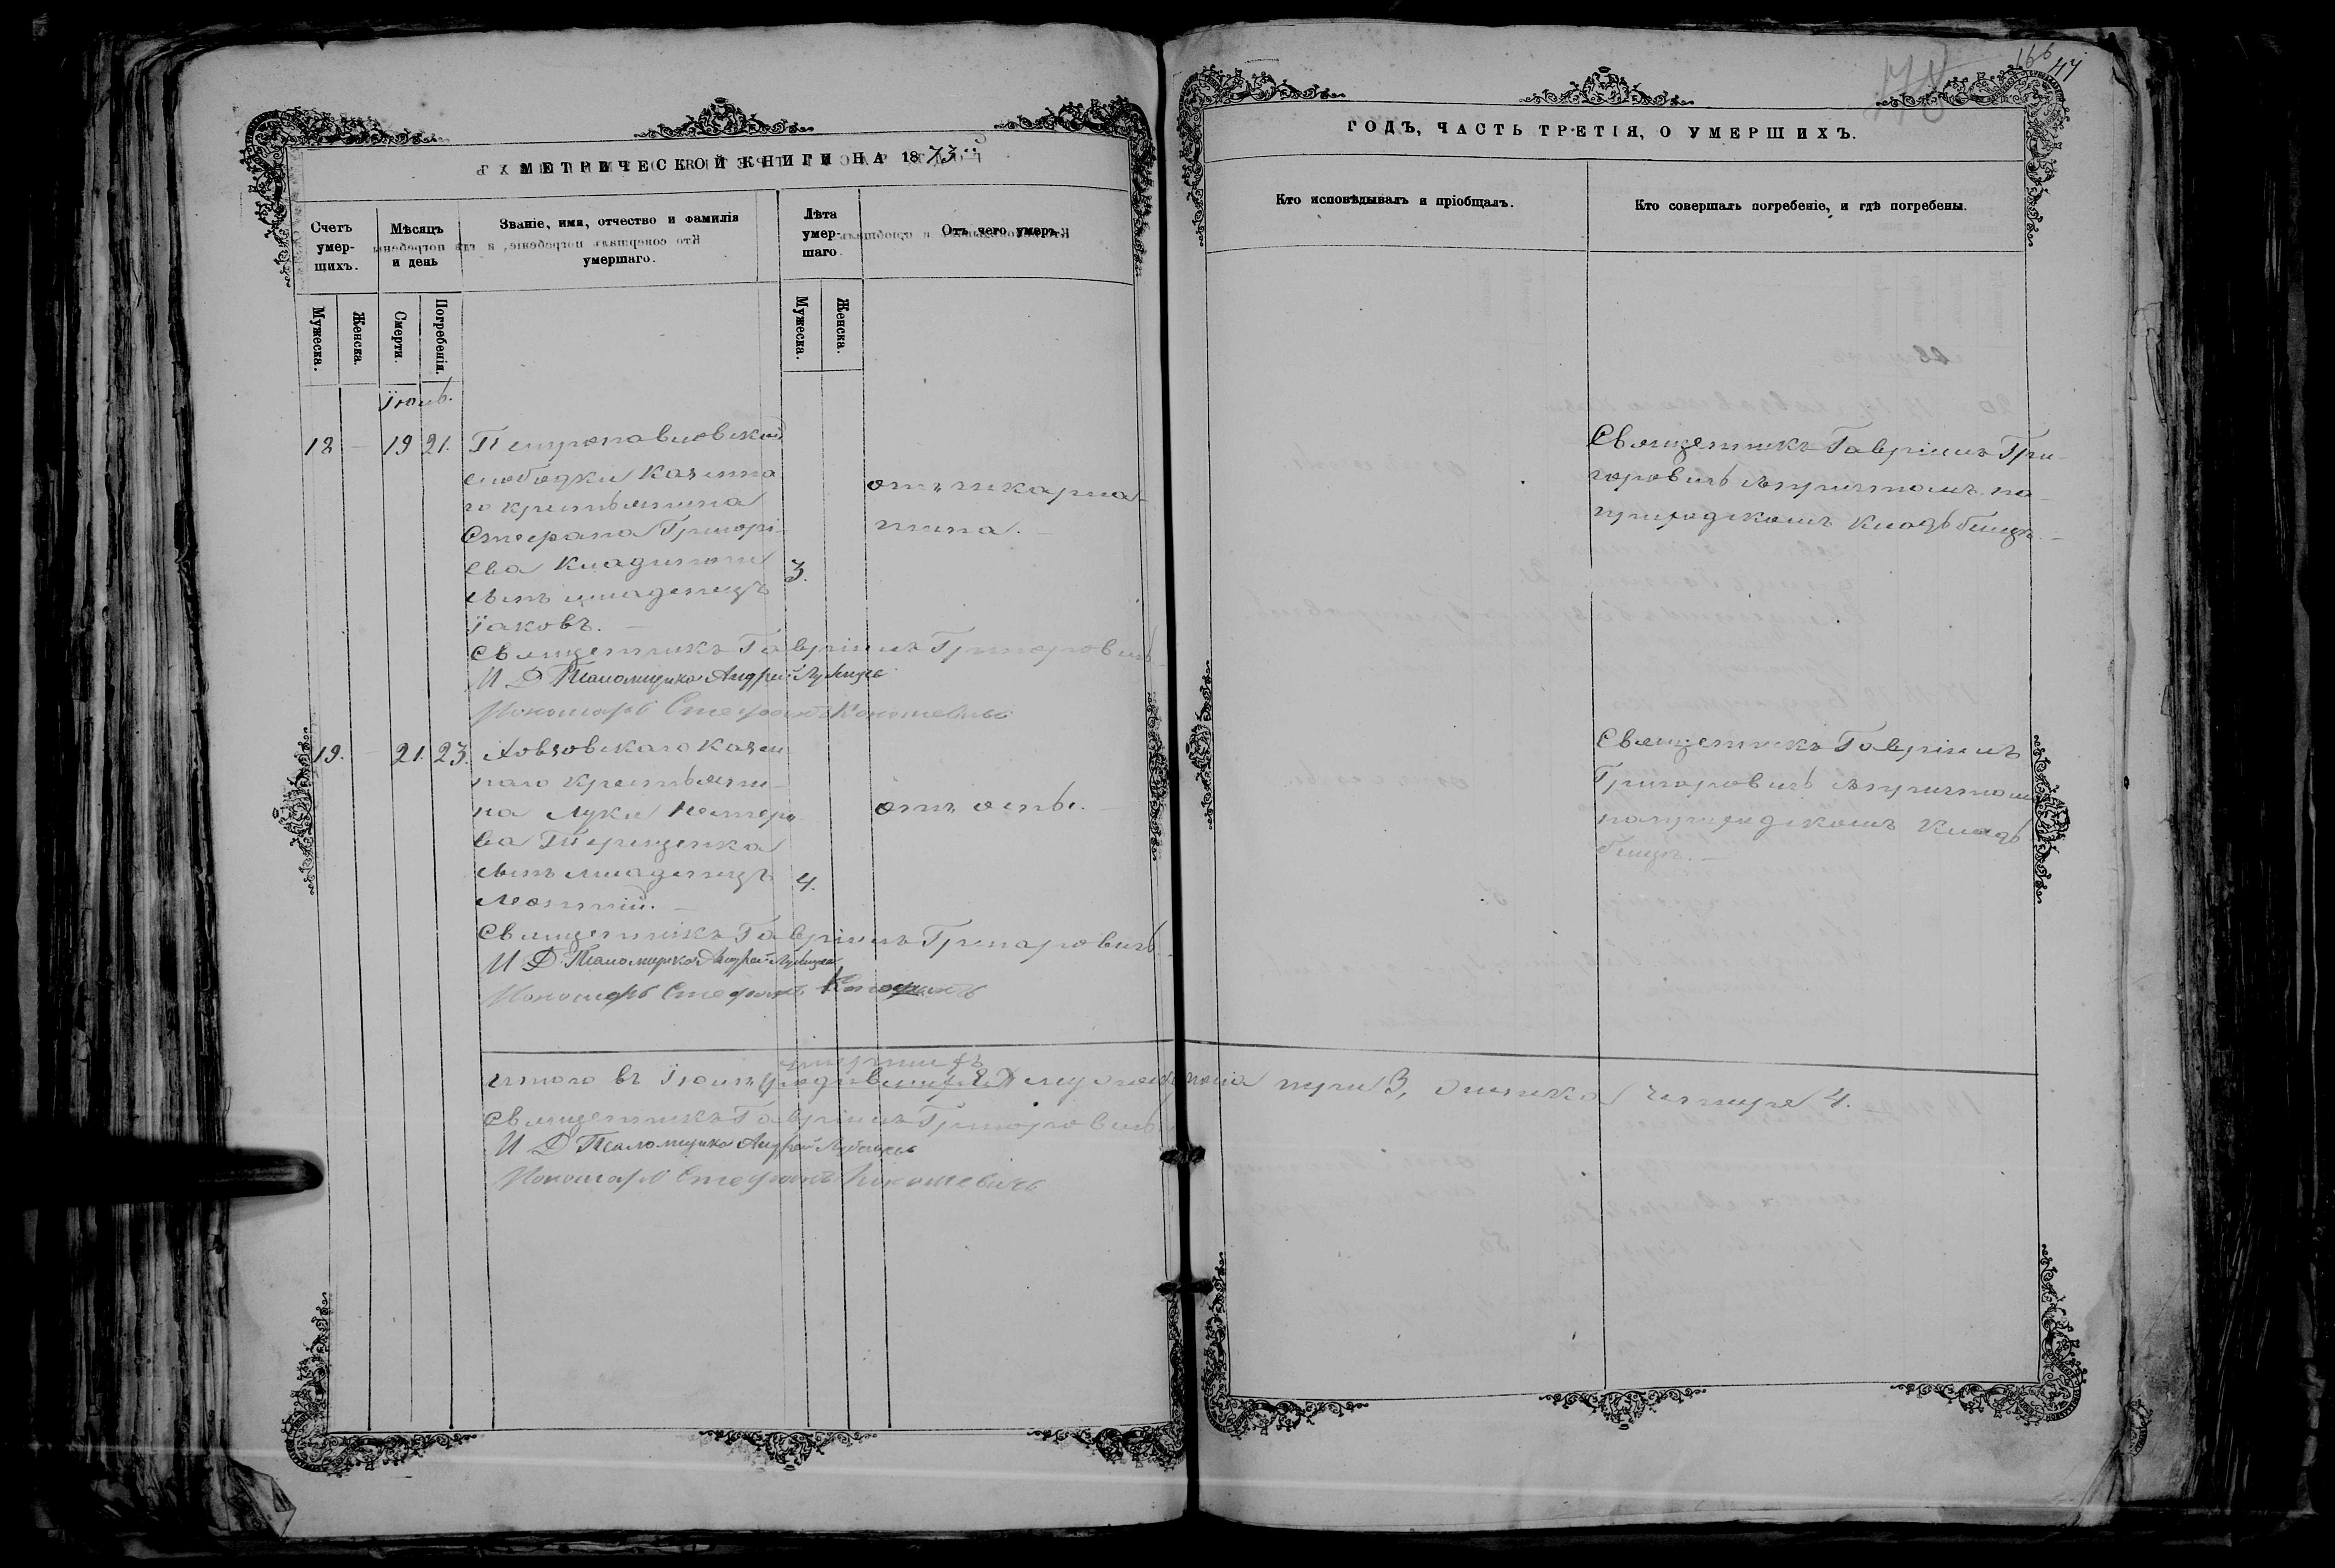 МЕТРИЧЕСКОЙ КНИГИ НА 1873й
Счетъ умер-шихъ.
Мѣсяцъ и день
Званіе, имя, отчество и фамилія умершаго.
Лѣта умер-шаго.
Отъ чего умеръ.
Мужеска.
Женска.
Смерти.
Погребенія.
Мужеска.
Женска.
Іюль.
18 — 19 21. Петропавловской
слободки казенна
го крестьянина
Стефана Григорі-
ева
сынъ младенецъ 3.
Іаковъ. —
отъ шкарла-
тина. —
Священникъ Гавріилъ Григоровичь
И Д Псаломщика Андрей
Пономарь Стефанъ
19. — 21. 23. казен
наго крестьяни-
на Луки Нестеро
ва Терещенка
сынъ младенецъ 4.
Леонтій. —
отъ оспы. —
Священникъ Гавріилъ Григоровичь
И Д Псаломщика Андрей
Пономарь Стефанъ
умершихъ
Итого въ Іюлѣ мужеска пола три 3, женска четыре 4.
Священникъ Гавріилъ Григоровичь
И Д Псаломщика Андрей
Пономарь Стефанъ
166
47
ГОДЪ, ЧАСТЬ ТРЕТІЯ, О УМЕРШИХЪ.
Кто исповѣдывалъ и пріобщалъ.
Кто совершалъ погребеніе, и гдѣ погребены.
Священникъ Гавріилъ Гри-
горовичь съ причтомъ на
приходскомъ кладбищѣ. —
Священникъ Гавріилъ
Григоровичь съ причтомъ
на приходскомъ клад
бищѣ. —